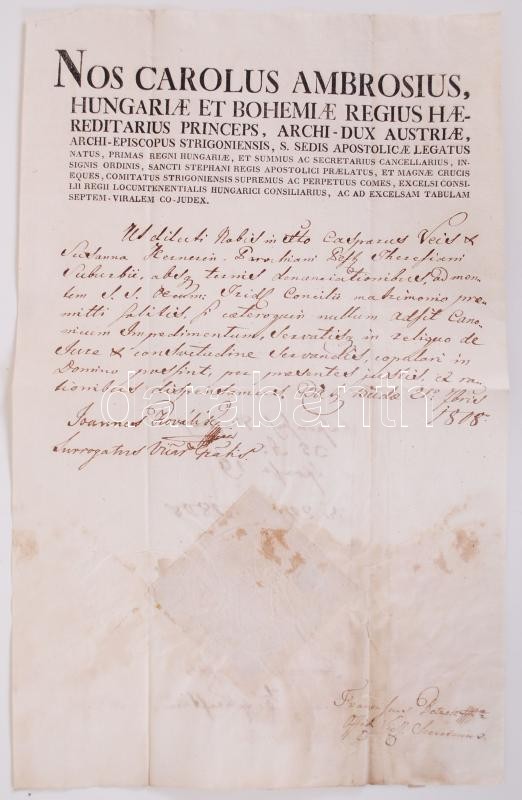 NOS CAROLUS AMBROSIUS,
HUNGARIÆ ET BOHEMIÆ REGIUS HÆ-
REDITARIUS PRINCEPS, ARCHI-DUX AUSTRIÆ,
ARCHI-EPISCOPUS STRIGONIENSIS, S. SEDIS APOSTOLICÆ LEGATUS
NATUS, PRIMAS REGNI HUNGARIÆ, ET SUMMUS AC SECRETARIUS CANCELLARIUS, IN-
SIGNIS ORDINIS, SANCTI STEPHANI REGIS APOSTOLICI PRÆLATUS, ET MAGNÆ CRUCIS
EQUES, COMITATUS STRIGONIENSIS SUPREMUS AC PERPETUUS COMES, EXCELSI CONSI-
LII REGII LOCUMTENENTIALIS HUNGARICI CONSILIARIUS, AC AD EXCELSAM TABULAM
SEPTEM-VIRALEM CO-JUDEX.
Ut dilecti Nobis in Casparus Veis &
Susanna Theresiani
Suburbii, absq trinis denunciationibus, ad men-
tem S. S. Concilii matrimonio pre-
mitti solitis, si cæteroquin nullum adsit Cano-
nicum Impedimentum, Servatisq in reliquo de
Jure & consvetudine Servandis, copulari in
Domino possint, per presentes justis, ex ra-
tionibus dispensamus. Budæ
1808
Joannes
Surrogatus Gralis
darabanth
Franciscus